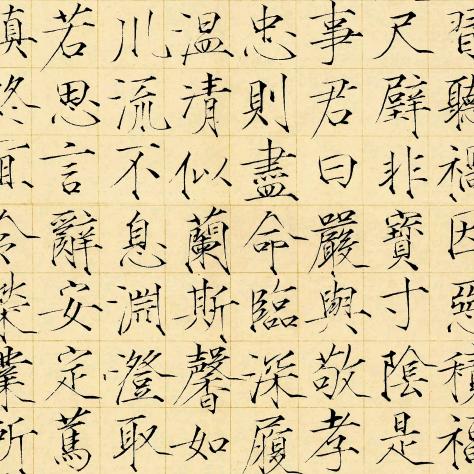 習聽禍因惡積福
尺璧非寶寸陰是
事君曰嚴與敬孝
忠則盡命臨深履
溫清似蘭斯馨如
川流不息淵澄取
若思言辭安定篤
慎終宜令榮業所